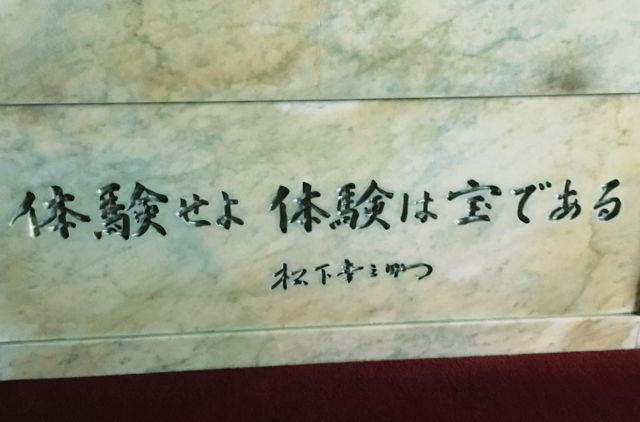 体験せよ 体験は宝である
松下幸之助